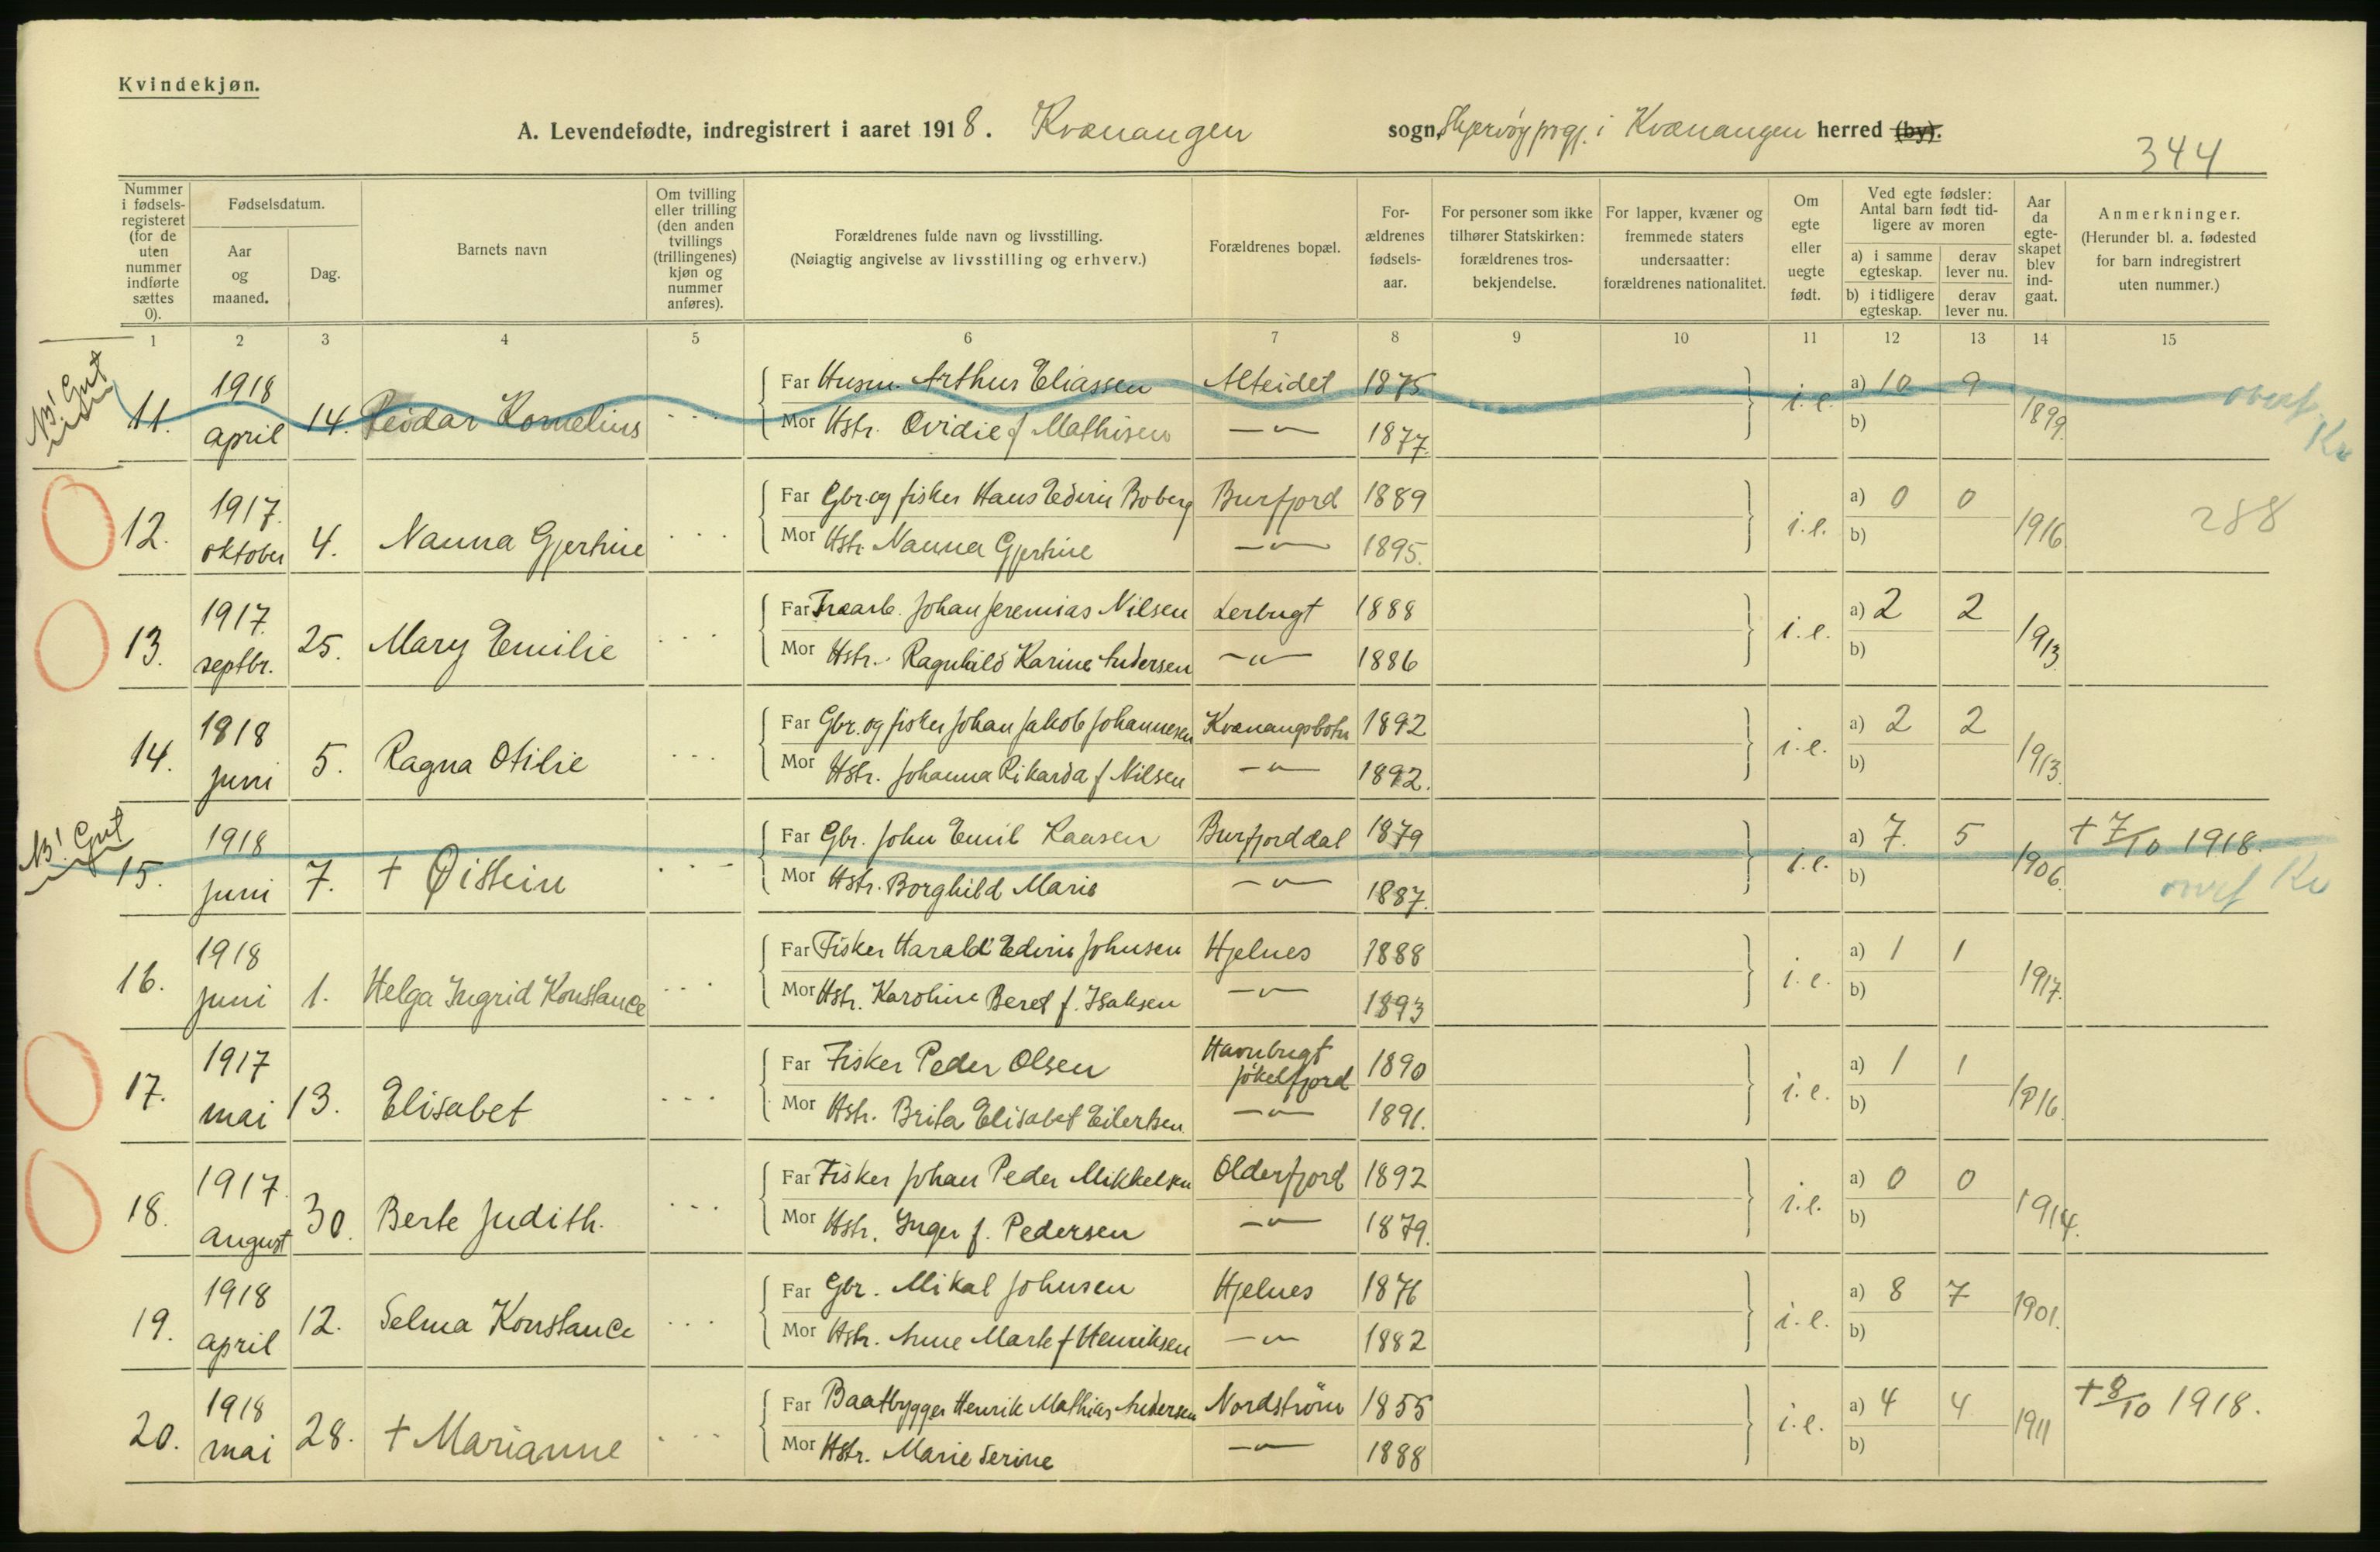 Kvindekjøn.
A. Levendefødte, indregistrert i aaret 1918. Kvænangen sogn, Skjervøy prgj. i Kvænangen herred (by).
344
Nummer i fødsels-registeret (for de uten nummer indførte sættes 0).
Fødselsdatum.
Aar og maaned.
Dag.
Barnets navn
Om tvilling eller trilling (den anden tvillings (trillingenes) kjøn og nummer anføres).
Forældrenes fulde navn og livsstilling.
(Nøiagtig angivelse av livsstilling og erhverv.)
Forældrenes bopæl.
For-ældrenes fødsels-aar.
For personer som ikke tilhører Statskirken: forældrenes tros-bekjendelse.
For lapper, kvæner og fremmede staters undersaatter: forældrenes nationalitet.
Om egte eller uegte født.
Ved egte fødsler: Antal barn født tid-ligere av moren
a) i samme egteskap.
derav lever nu.
b) i tidligere egteskap.
derav lever nu.
Aar da egte-skapet blev ind-gaat.
Anmerkninger.
(Herunder bl. a. fødested for barn indregistrert uten nummer.)
1 2 3 4 5 6 7 8 9 10 11 12 13 14 15
NB! Gut
11. 1918 april 14. Reidar Kornelius - - -
Far Husm. Arthur Eliassen Alteidet 1875 i.e. a) 10 9 1899. overf. Kv
Mor Hstr. Ovidie f Mathisen —"— 1877. b)
12. 1917. oktober 4. Nanna Gjertine - - -
Far Gbr. og fisker Hans Edvin Boberg Burfjord 1889 i.e. a) 0 0 1916 288
Mor Hstr. Nanna Gjertine —"— 1895. b)
13. 1917. septbr. 25. Mary Emilie - - -
Far Træarb. Johan Jeremias Nilsen Lerbugt 1888 i.e. a) 2 2 1913.
Mor Hstr. Ragnhild Karine Andersen —"— 1886 b)
14. 1918 juni 5. Ragna Otilie - - -
Far Gbr. og fisker Johan Jakob Johannesen Kvænangsbotn 1892 i.e. a) 2 2 1913.
Mor Hstr. Johanna Rikarda f Nilsen —"— 1892. b)
NB! Gut
15. 1918 juni 7. + Øistein - - -
Far Gbr. John Emil Kaasen Burfjorddal 1879 i.e. a) 7. 5 1906. + 7/10 1918.
Mor Hstr. Borghild Marie —"— 1887. b) overf Kv
16. 1918 juni 1. Helga Ingrid Konstance - - -
Far Fisker Harald Edvin Johnsen Hjelnes 1888 i.e. a) 1 1 1917.
Mor Hstr. Karoline Beret f. Isaksen —"— 1893 b)
17. 1917 mai 13. Elisabet - - -
Far Fisker Peder Olsen Havnbugt Jøkelfjord 1890 i.e. a) 1 1 1916.
Mor Hstr. Brita Elisabet Eilertsen —"— 1891. b)
18. 1917. august 30. Berte Judith. - - -
Far Fisker Johan Peder Mikkelsen Olderfjord 1892 i.e. a) 0 0 1914.
Mor Hstr. Inger f. Pedersen —"— 1879. b)
19. 1918 april 12. Selma Konstance - - -
Far Gbr. Mikal Johnsen Hjelnes 1876 i.e. a) 8 7 1901.
Mor Hstr. Anne Marte f Henriksen —"— 1882 b)
20. 1918 mai 28. + Marianne - - -
Far Baatbygger Henrik Mathias Andersen Nordstrøm 1855 i.e. a) 4 4 1911 + 8/10 1918.
Mor Hstr. Marie Serine —"— 1888 b)